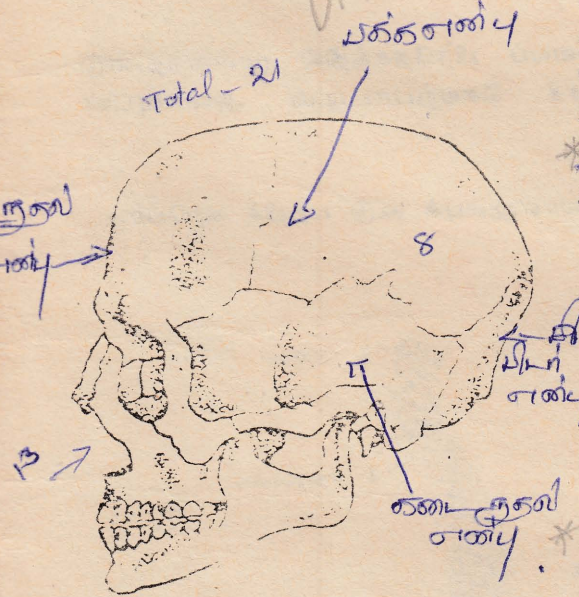 பக்கஎன்பு
Total - 21
நுதல்
என்பு
8
பிடர்
என்பு
கடை நுதல்
என்பு